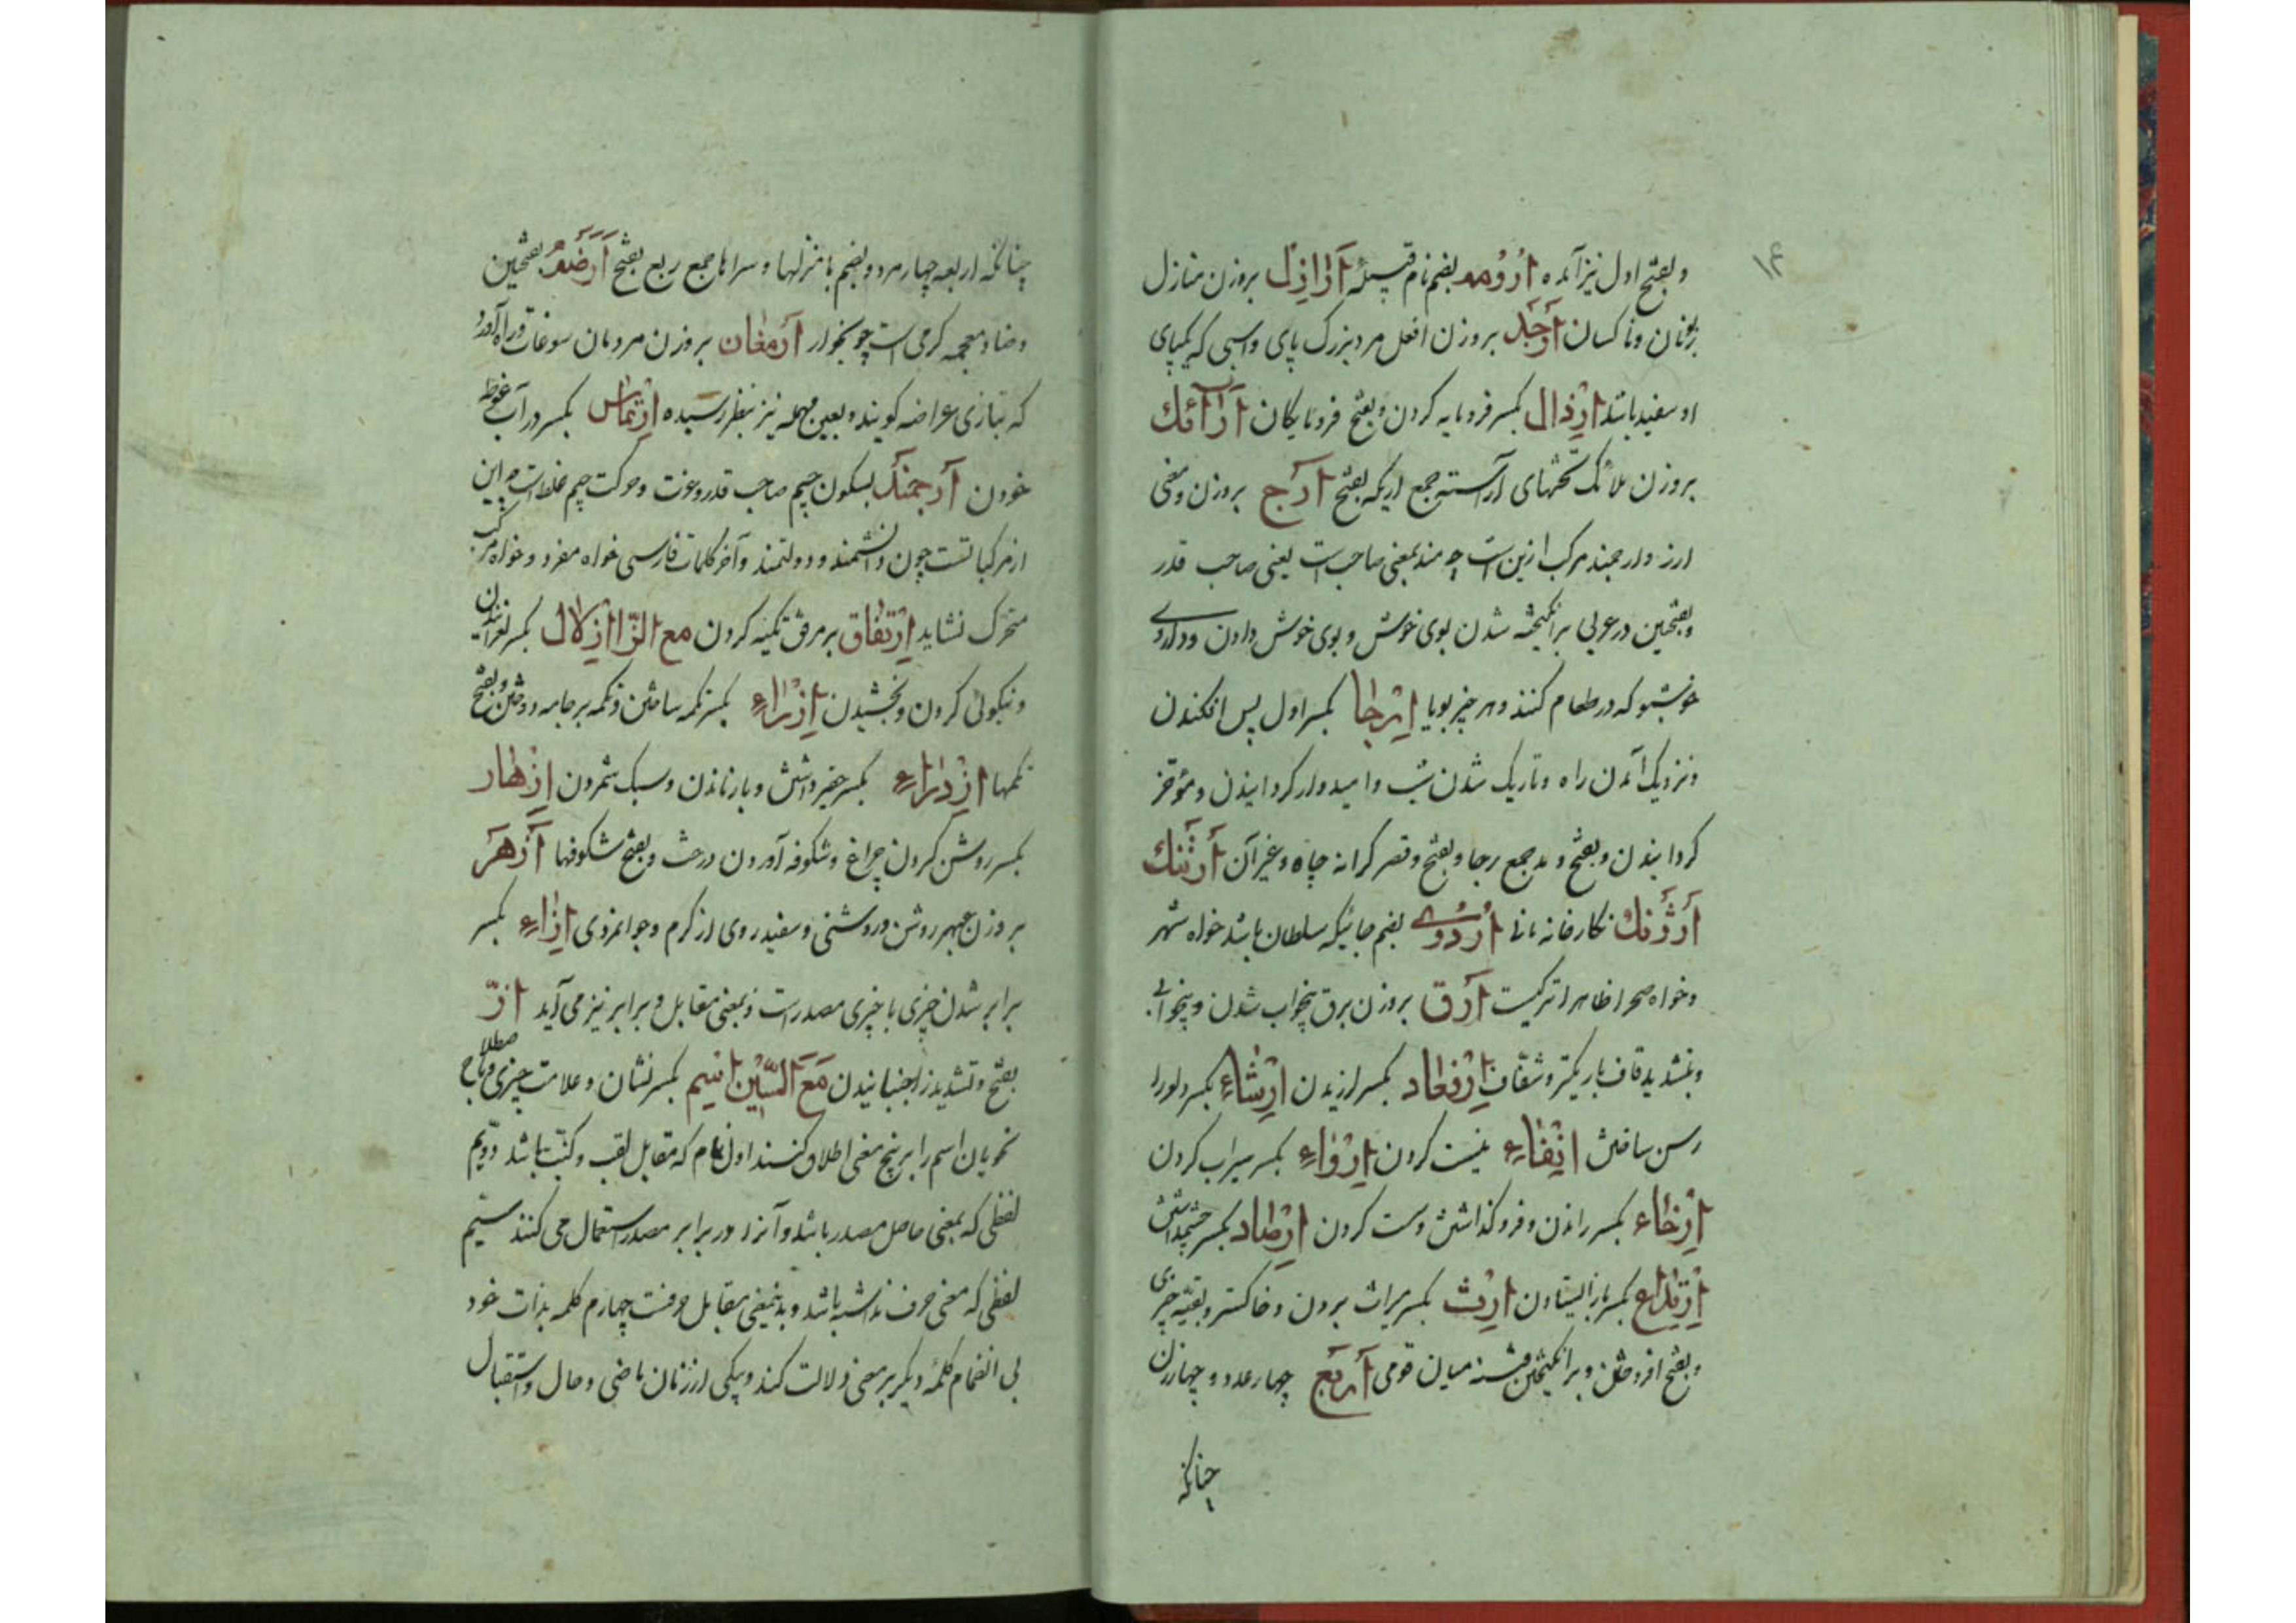 ۱۴
و بفتح اول نیز آمده اُرُومه بضم نام قبیله اَرَاذِل بروزن منازل
زبونان و ناکسان اَرجَل بروزن افعل مرد بزرگ پای و اسبی که یکپای
او سفید باشد اِرذال بکسر فرومایه کردن و بفتح فرومایگان اَرَآئك
بروزن ملائک تختهای آراسته جمع اریکه بفتح اَرج بروزن و معنی
ارز و ارجمند مرکب ازین است چه مند بمعنی صاحب است یعنی صاحب قدر
و بفتحین در عربی برانگیخته شدن بوی خوش و بوی خوش دادن و داروی
خوشبو که در طعام کنند و هر چیز بویا اِرجا بکسر اول پس افکندن
و نزدیک آمدن راه و تاریک شدن شب و امیدوار گردانیدن و مؤخر
گردانیدن و بفتح و مد جمع رجا و بفتح و قصر کرانه چاه و غیر آن اَرثنك
اَرژَنك نگارخانه مانی اُردُوی بضم جائیکه سلطان باشد خواه شهر
و خواه صحرا ظاهرا ترکیست اَرق بروزن برق بیخواب شدن و بیخوابی
و بتشدید قاف باریکتر و شفاف اِرتعاد بکسر لرزیدن اِرشاء بکسر دلو را
رسن ساختن اِنتفاء نیست کردن اِرواء بکسر سیراب کردن
اِرخاء بکسر راندن و فروگذاشتن و سست کردن اِرصاد بکسر چشم داشتن
اِرتداع بکسر باز ایستادن اِرث بکسر میراث بردن و خاکستر و بقیه چیزی
و بفتح افروختن و برانگیختن فتنه میان قومی اَربع چهار عدد و چهار زن
چنانکه
چنانکه اربعه چهار مرد و بضم با منزلها و سراها جمع ربع بفتح اَرَضَه بفتحین
و ضاد معجمه کرمی است چوبخوار اَرمَغان بروزن مردمان سوغات و راه آورد
که بتازی عراضه گویند و بعین مهمله نیز بنظر رسیده اِرتماس بکسر در آب غوطه
خوردن اَرجمند بسکون جیم صاحب قدر و عزت و حرکت جیم غلط است چه این
از مرکباتست چون دانشمند و دولتمند و آخر کلمات فارسی خواه مفرد و خواه مرکب
متحرک نشاید اِرتفاق بر مرفق تکیه کردن مع الزّا اِزلال بکسر لغزانیدن
و نیکوئی کردن و بخشیدن اِزراء بکسر تکمه ساختن و تکمه بر جامه دوختن و بفتح
تکمها اِزدراء بکسر حقیر داشتن و باز ماندن و سبک شمردن اِزهار
بکسر روشن کردن چراغ و شکوفه آوردن درخت و بفتح شکوفها اَزهَر
بروزن عبهر روشن و روشنی و سفیدروی از کرم و جوانمردی اِزاء بکسر
برابر شدن چیزی با چیزی مصدر است و بمعنی مقابل و برابر نیز می آید ازّ
بفتح و تشدید زا جنبانیدن مَعَ السّین اسم بکسر نشان و علامت چیزی و باصطلاح
نحویان اسم را بر پنج معنی اطلاق کنند اول نام که مقابل لقب و کنیت باشد دویم
لفظی که بمعنی حاصل مصدر باشد و آنرا در برابر مصدر استعمال می کنند سیم
لفظی که معنی حرف نداشته باشد و بدینمعنی مقابل حرفست چهارم کلمه بذات خود
بی انضمام کلمهٔ دیگر بر معنی دلالت کند و بیکی از زمان ماضی و حال و استقبال